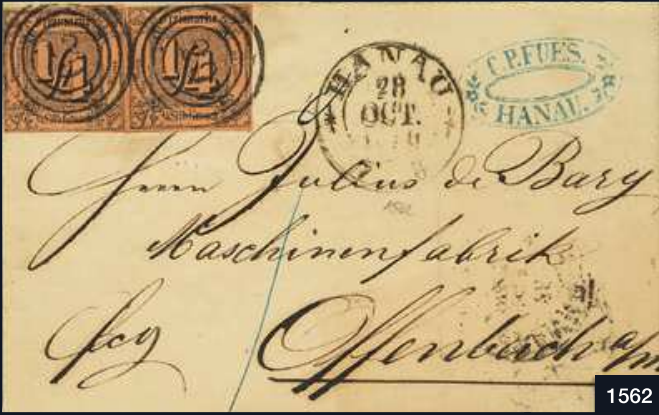 1/4 1/4
HANAU
28
OCT.
C.P. FUES.
HANAU.
Herrn Julius de Bary
Maschinenfabrik
fco
Offenbach a/m
1562